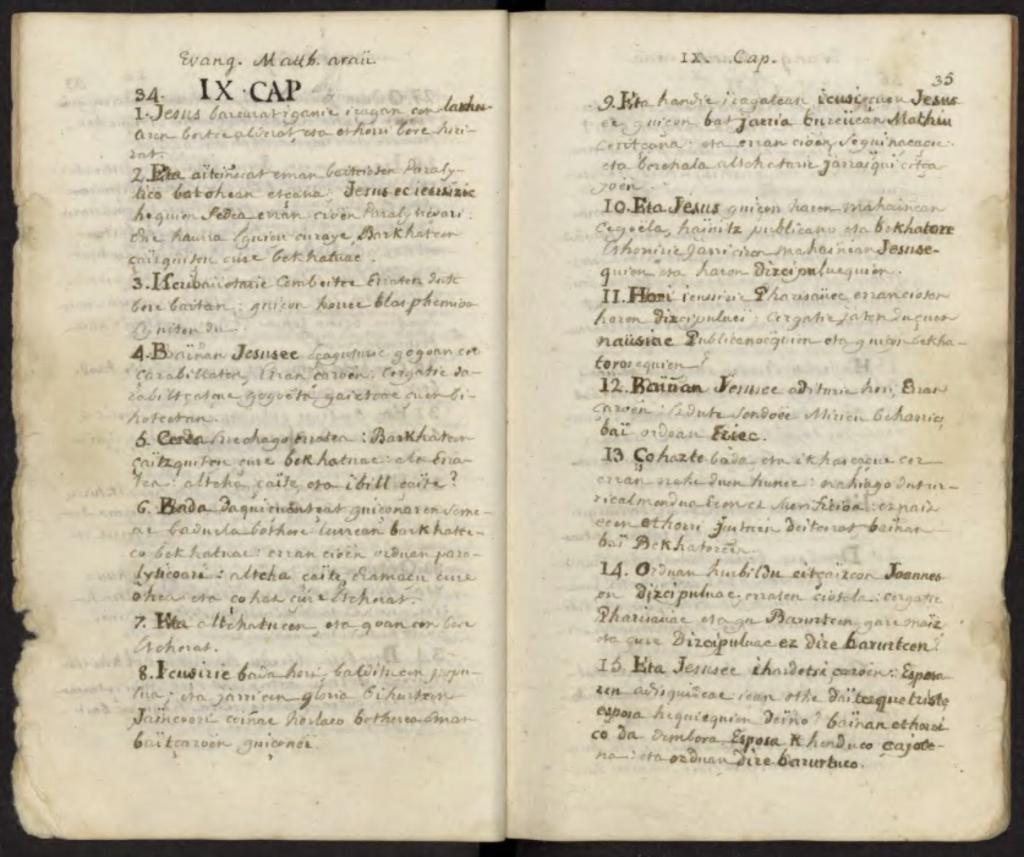 Evang. Matth. araü.
34. IX. CAP
1. Jesus barcurat iganic iragan cen
aren bertce alderat, eta ethorri bere hiri-
rat.
2. Eta aitcinerat eman baitcioten Paraly-
tico bat ohean etçana: Jesusec icussiric
hequien fedea erran cioën Paralyticoari:
ene haurra curaye, Barkhatcen
çaizquitcu cure bekhatuac.
3. cembeitec erraten dute
bere baitan: guiçon hunec blasphemioa
du.
4. Bainan Jesusec gogoan cer
çarabillaten, erran çaroën: cergatic da-
rabiltçatçue gogoeta gaixtoac çuen bi-
hotcetan.
5. Ceda erratea: Barkhatcen
çaitzquitcu çure bekhatuac: ala erra-
tea: altcha çaite, eta ibill çaite?
6. Bada daquiçuentçat guiçonaren Seme-
ac baduela bothere lurrean barkhatce-
co bekhatuac: erran cioën orduan para-
lyticoari: altcha çaite, harmaçu çure
ohea eta çohaz çure etcherat.
7. Eta altchatu cen, eta goan cen bere
etcherat.
8. Icusiric bada hori, belditu cen popu-
lua; eta jarri cen gloria bihurtcen
Jaincoari ceinac holaco botherea eman
baitçaroën guiçonei.
IX. Cap.
35
9. Eta handic iragatean icusi çuen Jesus-
ec guiçon bat jarria bureucan Mathiu
ceritçana: eta erran cioën, Segui neçaçu:
eta berehala altchatcric jarraiqui citça
joen.
10. Eta Jesus guiçon haren mahainean
cegoëla, hainitz publicano eta bekhatore
ethorriric jarri ciren mahainean Jesuse-
quien eta haren Dizcipuluequien.
11. Hori icussiric Pharisauec erran cioten
haren Dizcipuluei: cergatic jaten du çuen
naüsiac Publicanoequien eta guiçon bekha-
torosequien?
12. Bainan Jesusec adituric hori, Erran
çaroën: Eztute Sendoëc Miricu beharric,
baï orduan Eriec.
13. Çohazte bada eta ikhasçaçue cer
erran nahi duen hunec: nahiago dut ur-
ricalmendua ecen ez Sacrifitioa: ez naiz
ecen ethorri justuen deitcerat bainan
baï Bekhatorëen.
14. Orduan hurbildu citçaizcon Joannes-
en Dizcipuluac, erraten ciotela: cergatic
Pharisauac eta gu Barurtcen gare maiz
eta çure Dizcipuluac ez dire barurtcen?
15. Eta Jesusec ihardetsi çaroën: Esposa-
ren adisquideac ican othe daitezque triste
esposa hequiequien deino? bainan ethorri-
co da dembora Esposa khenduco çajote-
na: eta orduan dire barurtuco.